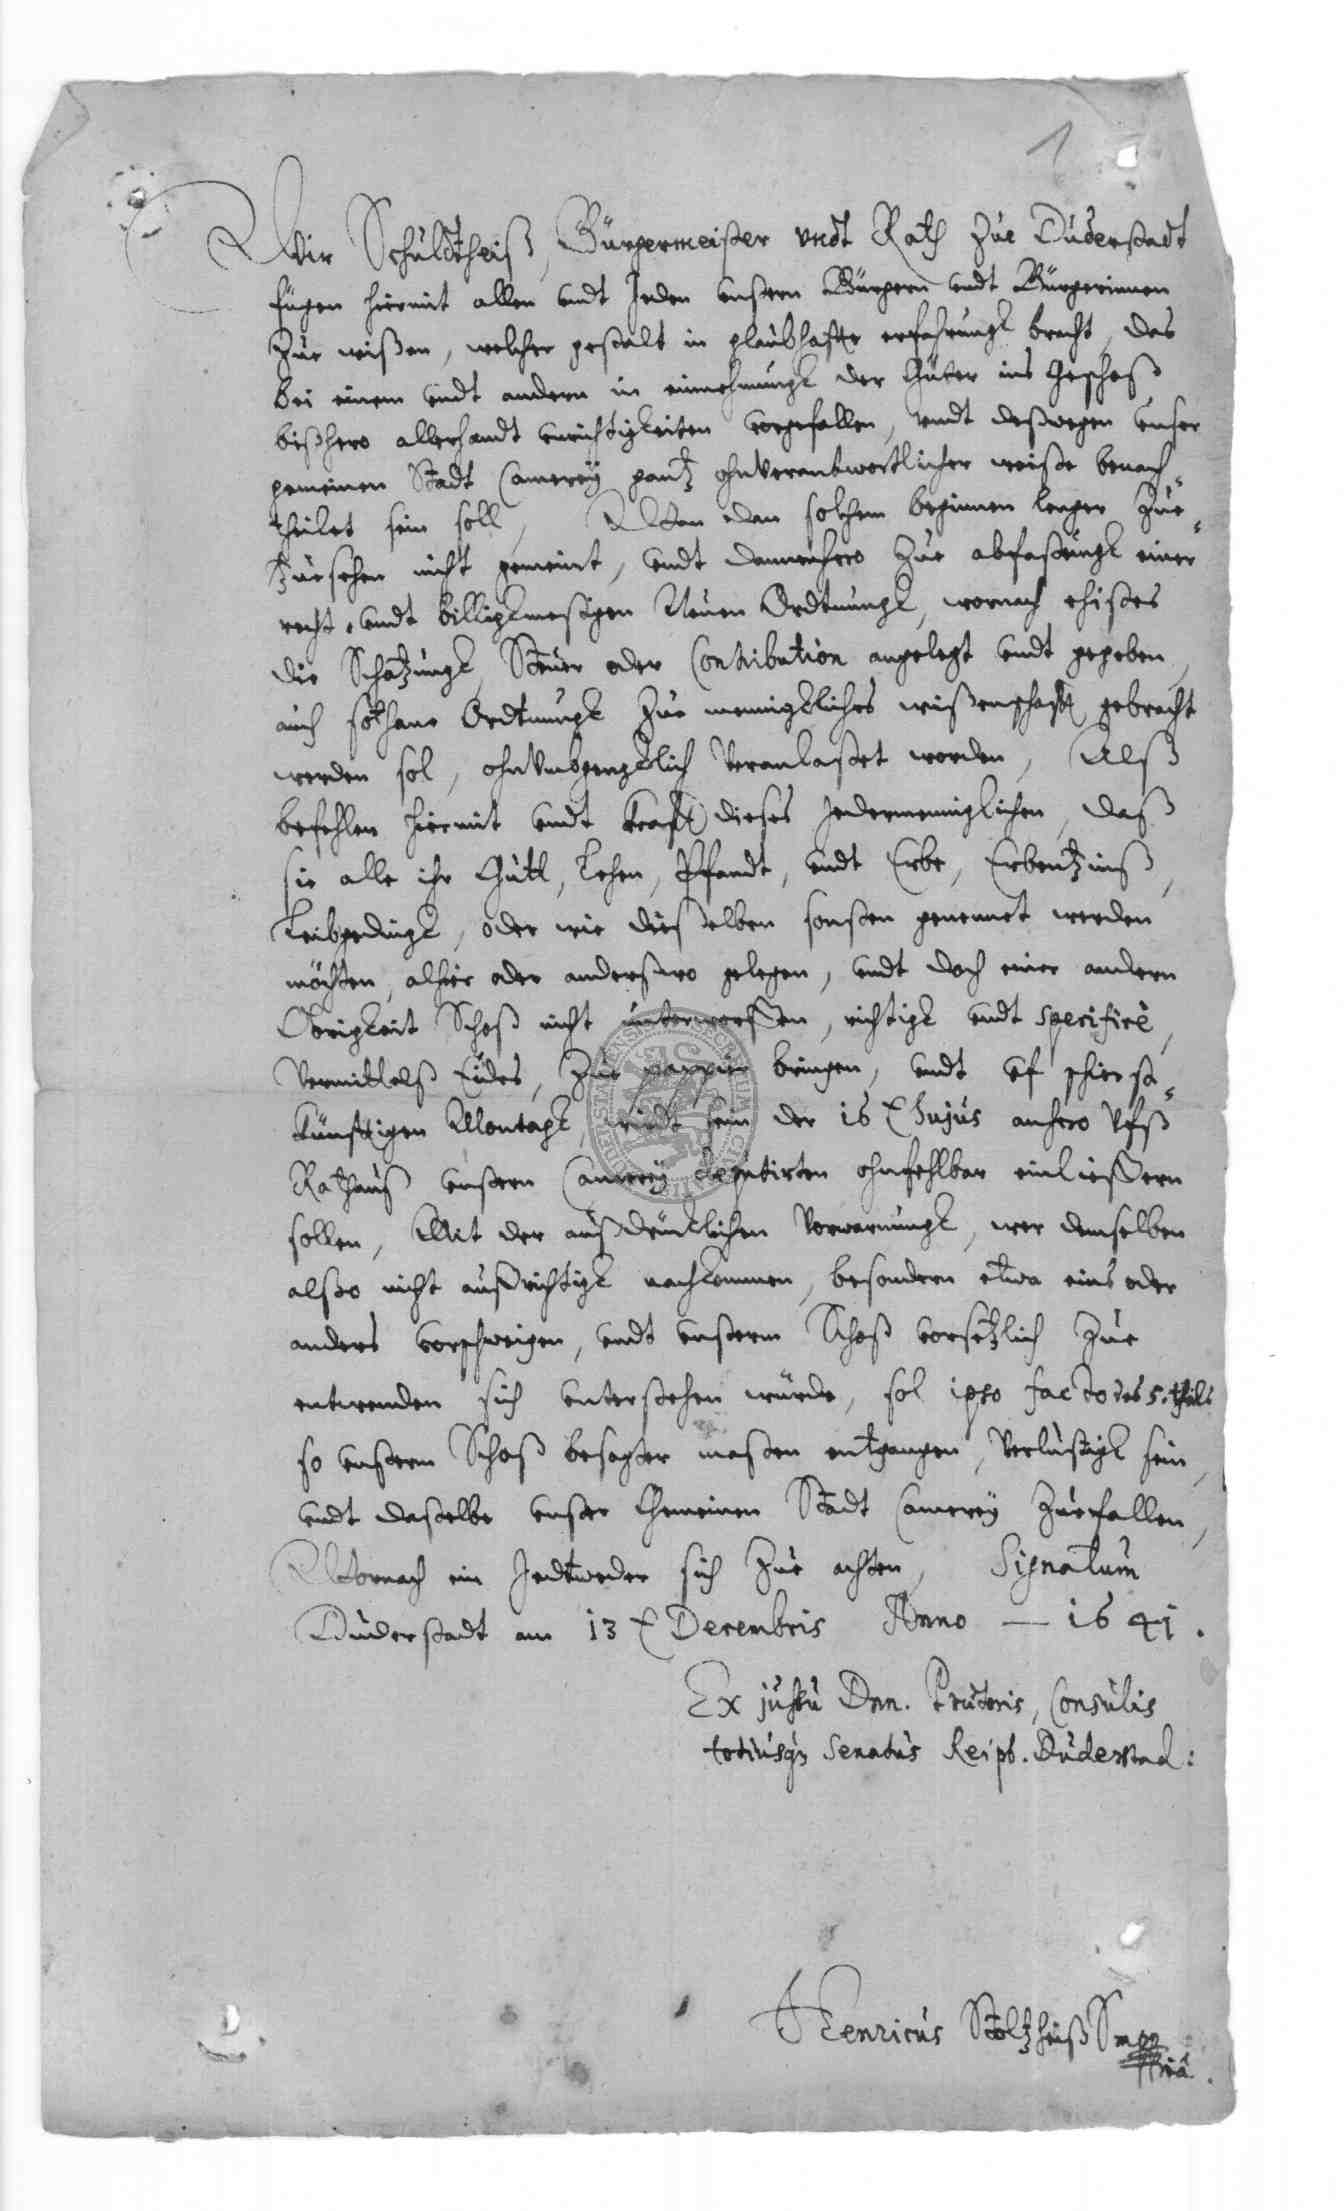 1
Wir Schuldtheiß, Bürgermeister undt Rath zue Duderstadt
fügen hiermit allen undt Jeden unßern Bürgern undt Bürgerinnen
zue wißen, welcher gestalt in glaubhafte erfahrungk bracht, das
bei einem undt andern in einnehmungk der Güter ins Geschoß
bißhero allerhandt unrichtigkeiten vorgefallen, undt deßwegen unser
gemeinen Stadt Camerey gantz ohnverantwortlicher weiße benach-
theilet sein soll, Wan dan solchem beginnen lenger zue-
zusehen nicht gemeint, undt dannenhero zue abfaßungk einer
recht- undt billigkmeßigen Neuen Ordtnungk, wornach ehistes
die Schatzungk, Steuer oder Contribution angelegt undt gegeben,
auch sothane Ordtnungk zue menniglliches wißenschaft gebracht
werden sol, ohnumbgengklich veranlaßet worden, Alß
befehlen hiermit undt kraft dieses Jedermenniglichen, daß
sie alle ihr Gütt, Lehen, Pfandt, undt Erbe, Erbentzinß,
Leibgedingk, oder wie dießelben sonsten genennet werden
möchten, alhier oder anderßwo gelegen, undt doch einer andern
Obrigkeit Schoß nicht unterworffen, richtigk undt specificè,
vermittelß Eides, zue pappier bringen, undt uf schierst-
künftigen Montagk, wirdt sein der 16 t. hujus anhero ufß
Rathauß unßern Camerey deputirten ohnfehlbar einließern
sollen, Mit der außdrücklichen Vorwarnungk, wer demselben
alßo nicht aufrichtigk nachkommen, besondern etwa eins oder
anders vorschweigen, undt unßerm Schoß vorsetzlich zue
entwenden sich unterstehen würde, sol ipso facto des 5. theils
so unßerm Schoß besagter maßen entgangen, verlustigk sein,
undt daßelbe unßer Gemeinen Stadt Camerey zuefallen,
Wornach ein Jedtweder sich zue achten, Signatum
Duderstadt am 13 t. Decembris Anno — 1641.
Ex jussu Dnn. Prætoris, Consulis
totiusq₃ Senatus Reipb. Duderstad:
Henricus Stoltzheiß S mpp